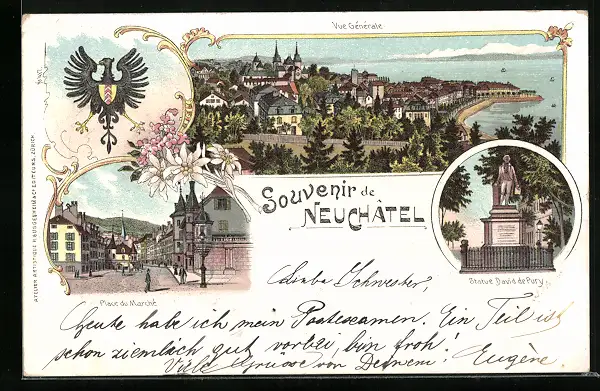 Vue Générale
Souvenir de
NEUCHÂTEL
Statue David de Pury
Place du Marché
ATELIER ARTISTIQUE H. GUGGENHEIM & Cº EDITEURS, ZÜRICH.
Liebe Schwester,
Heute habe ich mein Postexamen. Ein Teil ist
schon ziemlich gut vorbei, bin froh!
Viele Grüsse von Deinem Eugène